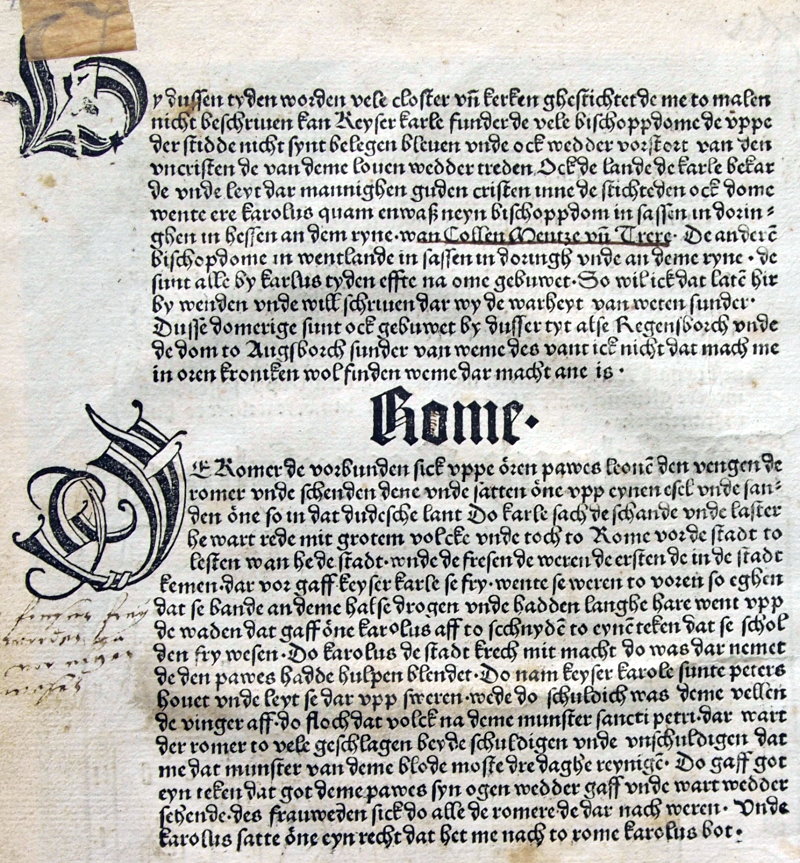 By dussen tyden worden vele closter vn̄ kerken ghestichtet de me to malen
nicht beschruen kan Keyser karle funder de vele bischoppdome de vppe
der stidde nicht synt belegen bleuen vnde ock wedder vorstort van den
vncristen de van deme louen wedder treden Ock de lande de karle bekar
de vnde leyt dar mannighen guden cristen inne de stichteden ock dome
wente ere karolus quam enwaß neyn bischoppdom in sassen in dorin⸗
ghen in hessen an dem ryne · wan Collen Mentze vn̄ Trere · De anderē
bischopdome in wentlande in sassen in doringh vnde an deme ryne · de
sunt alle by karlus tyden effte na ome gebuwet · So wil ick dat latē hir
by wenden vnde will schriuen dar wy de warheyt van weten sunder ·
Dusse domerige sunt ock gebuwet by dusser tyt alse Regensborch vnde
de dom to Augsborch sunder van weme des vant ick nicht dat mach me
in oren kroniken wol finden weme dar macht ane is ·
Rome ·
DE Romer de vorbunden sick vppe ören pawes leonē den vengen de
romer vnde schenden dene vnde satten öne vpp eynen esel vnde san⸗
den öne so in dat dudesche lant Do karle sach de schande vnde laster
he wart rede mit grotem volcke vnde toch to Rome vor de stadt to
lesten wan he de stadt · wnde de fresen de weren de ersten de in de stadt
kemen · dar vor gaff keyser karle se fry · wente se weren to voren so eghen
dat se bande an deme halse drogen vnde hadden langhe hare went vpp
de waden dat gaff öne karolus aff to scchnydē to eynē teken dat se schol
den fry wesen · Do karolus de stadt krech mit macht do was dar nemet
de den pawes hadde hulpen blendet · Do nam keyser karole sunte peters
houet vnde leyt se dar vpp sweren · wede do schuldich was deme vellen
de vinger aff · do floch dat volck na deme munster sancti petri · dar wart
der romer to vele geschlagen beyde schuldigen vnde vnschuldigen dat
me dat munster van deme blode moste dre daghe reynigē · Do gaff got
eyn teken dat got deme pawes syn ogen wedder gaff vnde wart wedder
sehende · des frauweden sick do alle de romere de dar nach weren · Vnde
karolus satte öne eyn recht dat het me nach to rome karolus bot ·